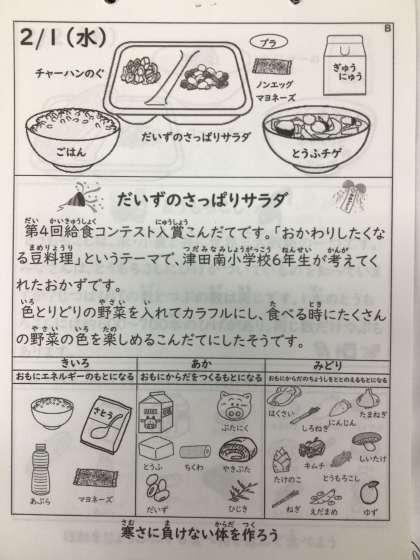 2/1(水)
B
チャーハンのぐ
プラ
ノンエッグ
マヨネーズ
ぎゅう
にゅう
だいずのさっぱりサラダ
ごはん
とうふチゲ
だいずのさっぱりサラダ
第4回給食コンテスト入賞こんだてです。「おかわりしたくな
る豆料理」というテーマで、津田南小学校6年生が考えてく
れたおかずです。
色とりどりの野菜を入れてカラフルにし、食べる時にたくさん
の野菜の色を楽しめるこんだてにしたそうです。
きいろ
おもにエネルギーのもとになる
さとう
あぶら
マヨネーズ
あか
おもにからだをつくるもとになる
ぶたにく
とうふ
ちくわ
やきぶた
だいず
ひじき
みどり
おもにからだのちょうしをととのえるもとになる
はくさい
しろねぎ
にんじん
たまねぎ
たけのこ
キムチ
とうもろこし
しいたけ
ねぎ
えだまめ
ゆず
寒さに負けない体を作ろう